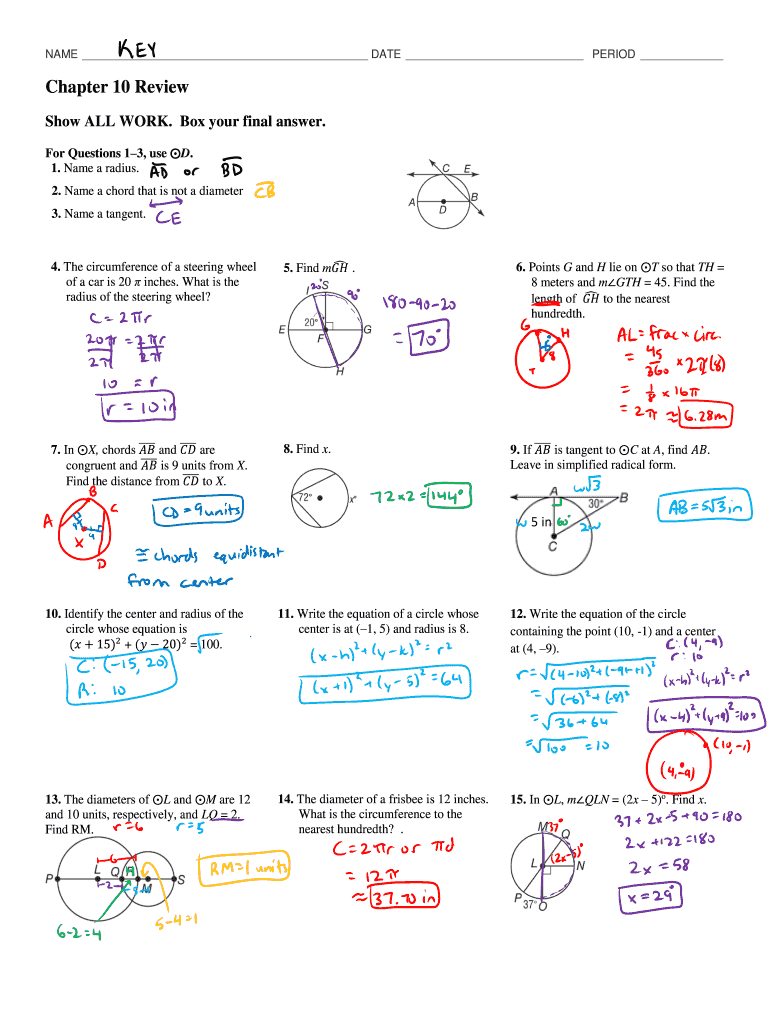 NAME KEY DATE PERIOD
Chapter 10 Review
Show ALL WORK. Box your final answer.
For Questions 1–3, use ⊙D.
1. Name a radius. AD or BD
2. Name a chord that is not a diameter CB
3. Name a tangent. CE
C E
A D B
4. The circumference of a steering wheel
of a car is 20 π inches. What is the
radius of the steering wheel?
C = 2πr
20π = 2πr
2π 2π
10 = r
r = 10 in
5. Find mGH .
I 20° S
90°
E 20° F G
H
180-90-20
= 70°
6. Points G and H lie on ⊙T so that TH =
8 meters and m∠GTH = 45. Find the
length of GH to the nearest
hundredth.
G H
45°
8
T
AL = frac × circ.
= 45/360 × 2π(8)
= 1/8 × 16π
= 2π ≈ 6.28m
7. In ⊙X, chords AB and CD are
congruent and AB is 9 units from X.
Find the distance from CD to X.
B
A C
9 9
X
D
CD = 9 units
≅ chords equidistant
from center
8. Find x.
72° x°
72×2 = 144°
9. If AB is tangent to ⊙C at A, find AB.
Leave in simplified radical form.
A w√3 B
30°
w 5 in 60° 2w
C
AB = 5√3 in
10. Identify the center and radius of the
circle whose equation is
(x + 15)² + (y – 20)² = √100.
C: (-15, 20)
R: 10
11. Write the equation of a circle whose
center is at (–1, 5) and radius is 8.
(x-h)²+(y-k)² = r²
(x+1)²+(y-5)² = 64
12. Write the equation of the circle
containing the point (10, -1) and a center
at (4, –9).
C: (4, -9)
r: 10
r = √(4-10)²+(-9++1)²
(x-h)²+(y-k)² = r²
= √(-6)²+(-8)²
= √36+64
= √100 = 10
(x-4)²+(y+9)² = 100
(10,-1)
(4,-9)
13. The diameters of ⊙L and ⊙M are 12
and 10 units, respectively, and LQ = 2.
Find RM. r=6 r=5
6
P L Q R M S
2
5-4=1
6-2=4
RM = 1 units
14. The diameter of a frisbee is 12 inches.
What is the circumference to the
nearest hundredth? .
C = 2πr or πd
= 12π
≈ 37.70 in
15. In ⊙L, m∠QLN = (2x – 5)º. Find x.
M 37° Q
L (2x-5)° N
P 37° O
37 + 2x-5+90 = 180
2x +122 = 180
2x = 58
x = 29°